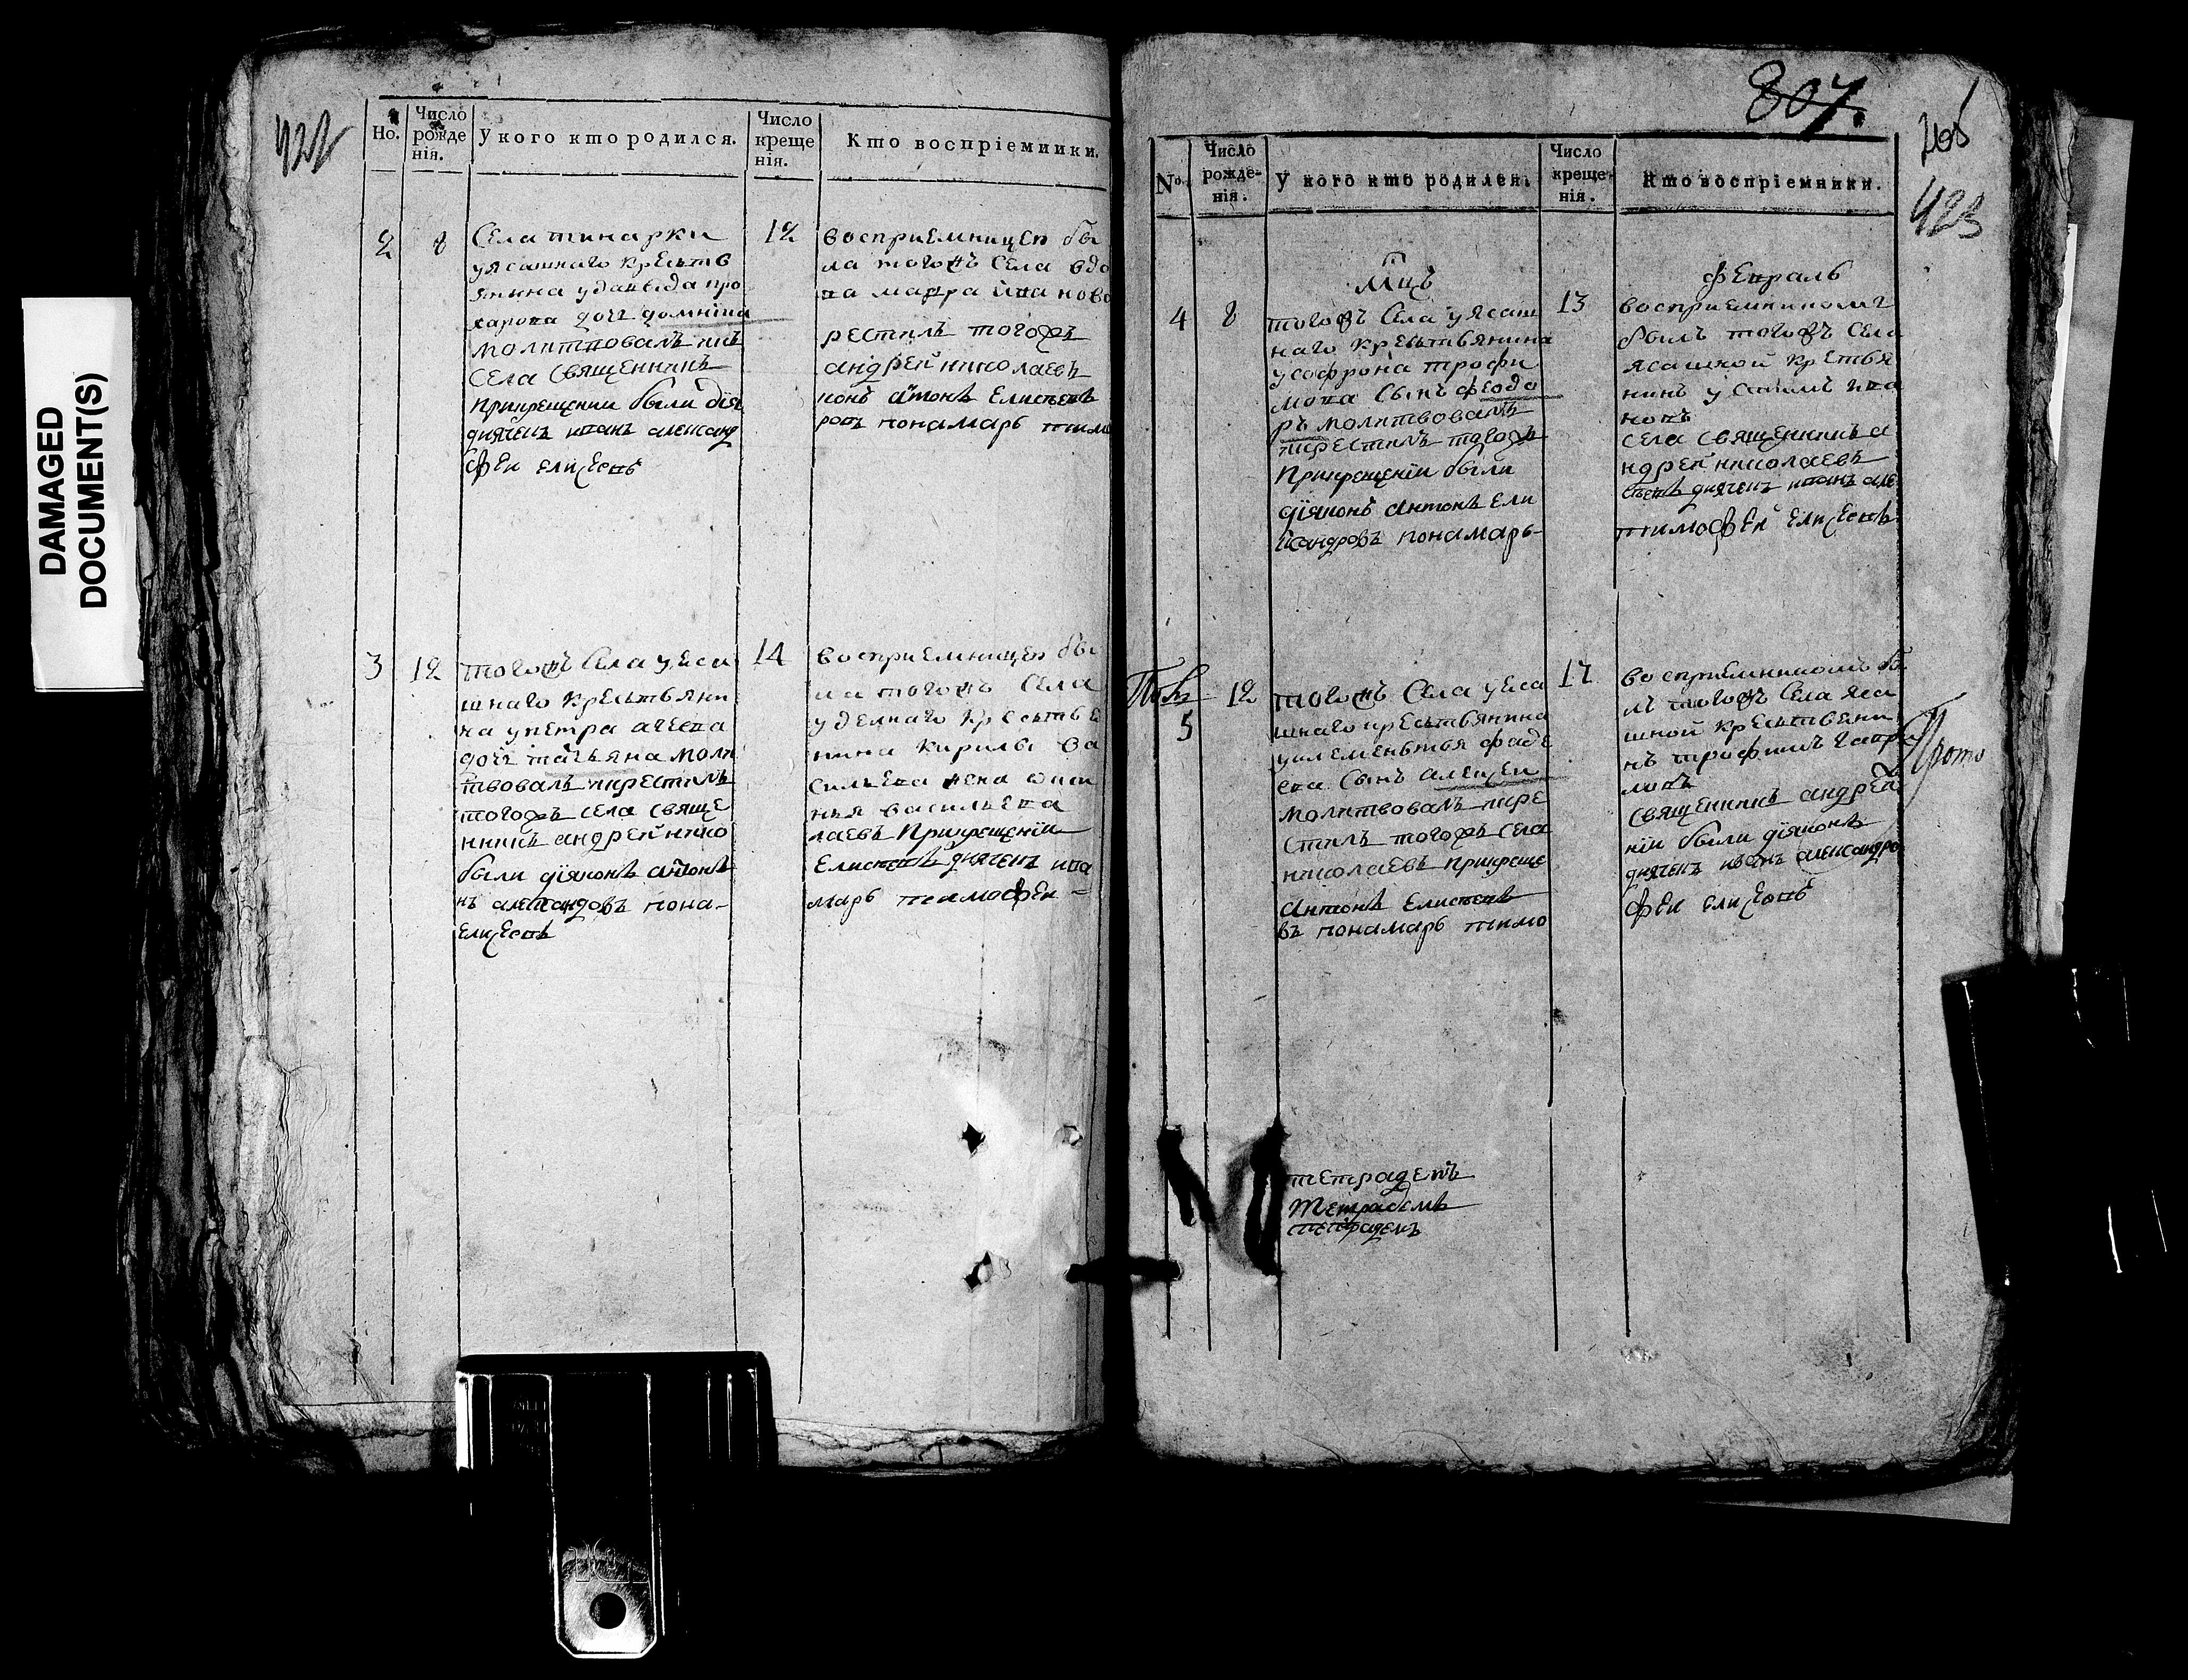 DAMAGED
DOCUMENT(S)
422
Но.
Число
рожде
нія.
У кого кто родился.
Число
креще
нія.
Кто воспріемники.
2
8
Села тинарки
уясашнаго кресть
янина удавыда про
харова дочь домніна
молитвовалъ
села священникъ
Прикрещении были дія
дьячекъ иванъ александ
феи елисеевъ
12
восприемницею бы
ла тогожъ села вдо
ва марра иванова
рестилъ тогожъ
андрей николаевъ
конъ антонъ Елисеевъ
ровъ понамарь тимо
3
12
тогожъ Села уяса
шнаго крестьяни
на упетра
дочь татьяна моли
твовалъ икрестилъ
тогожъ села свяще
нникъ андрей нико
были діяконъ антонъ
нъ александровъ пона-
елисеевъ
14
восприемницею бы
ла тогожъ села
уделнаго крестья
нина кирилы ва
сильева жена
васильева
лаевъ Прикрещеніи
Елисеевъ дьячекъ ива
марь тимофеи =
807.
205
423
№
Число
рожде-
нія.
У кого кто родился.
Число
креще-
нія.
Кто воспріемники.
Мцъ
февраль
4
8
тогожъ Села уясаш
наго крестьянина
усофрона трофи
мова сынъ феодо
ръ молитвовалъ
икрестилъ тогожъ
Прикрещеніи были
діяконъ антонъ Ели
ксандровъ понамарь-
13
восприемникомъ
былъ тогожъ Села
ясашной крестья
нинъ ива
новъ
села священникъ а
ндрей николаевъ
сеевъ дьячекъ иванъ але
тимофеи елисеевъ
5
12
тогожъ Села уяса
шнаго крестьянина
уклементья фаде
ева сынъ алексеи
молитвовалъ икре
стилъ тогожъ села
николаевъ прикреще
антонъ Елисеевъ
въ понамарь тимо
17
восприемникомъ бы
лъ тогожъ Села яса
шной крестьяни
нъ трофимъ гаври
ловъ
священникъ андрей
ніи были діяконъ
дьячекъ иванъ александро
феи елисеевъ
Прото